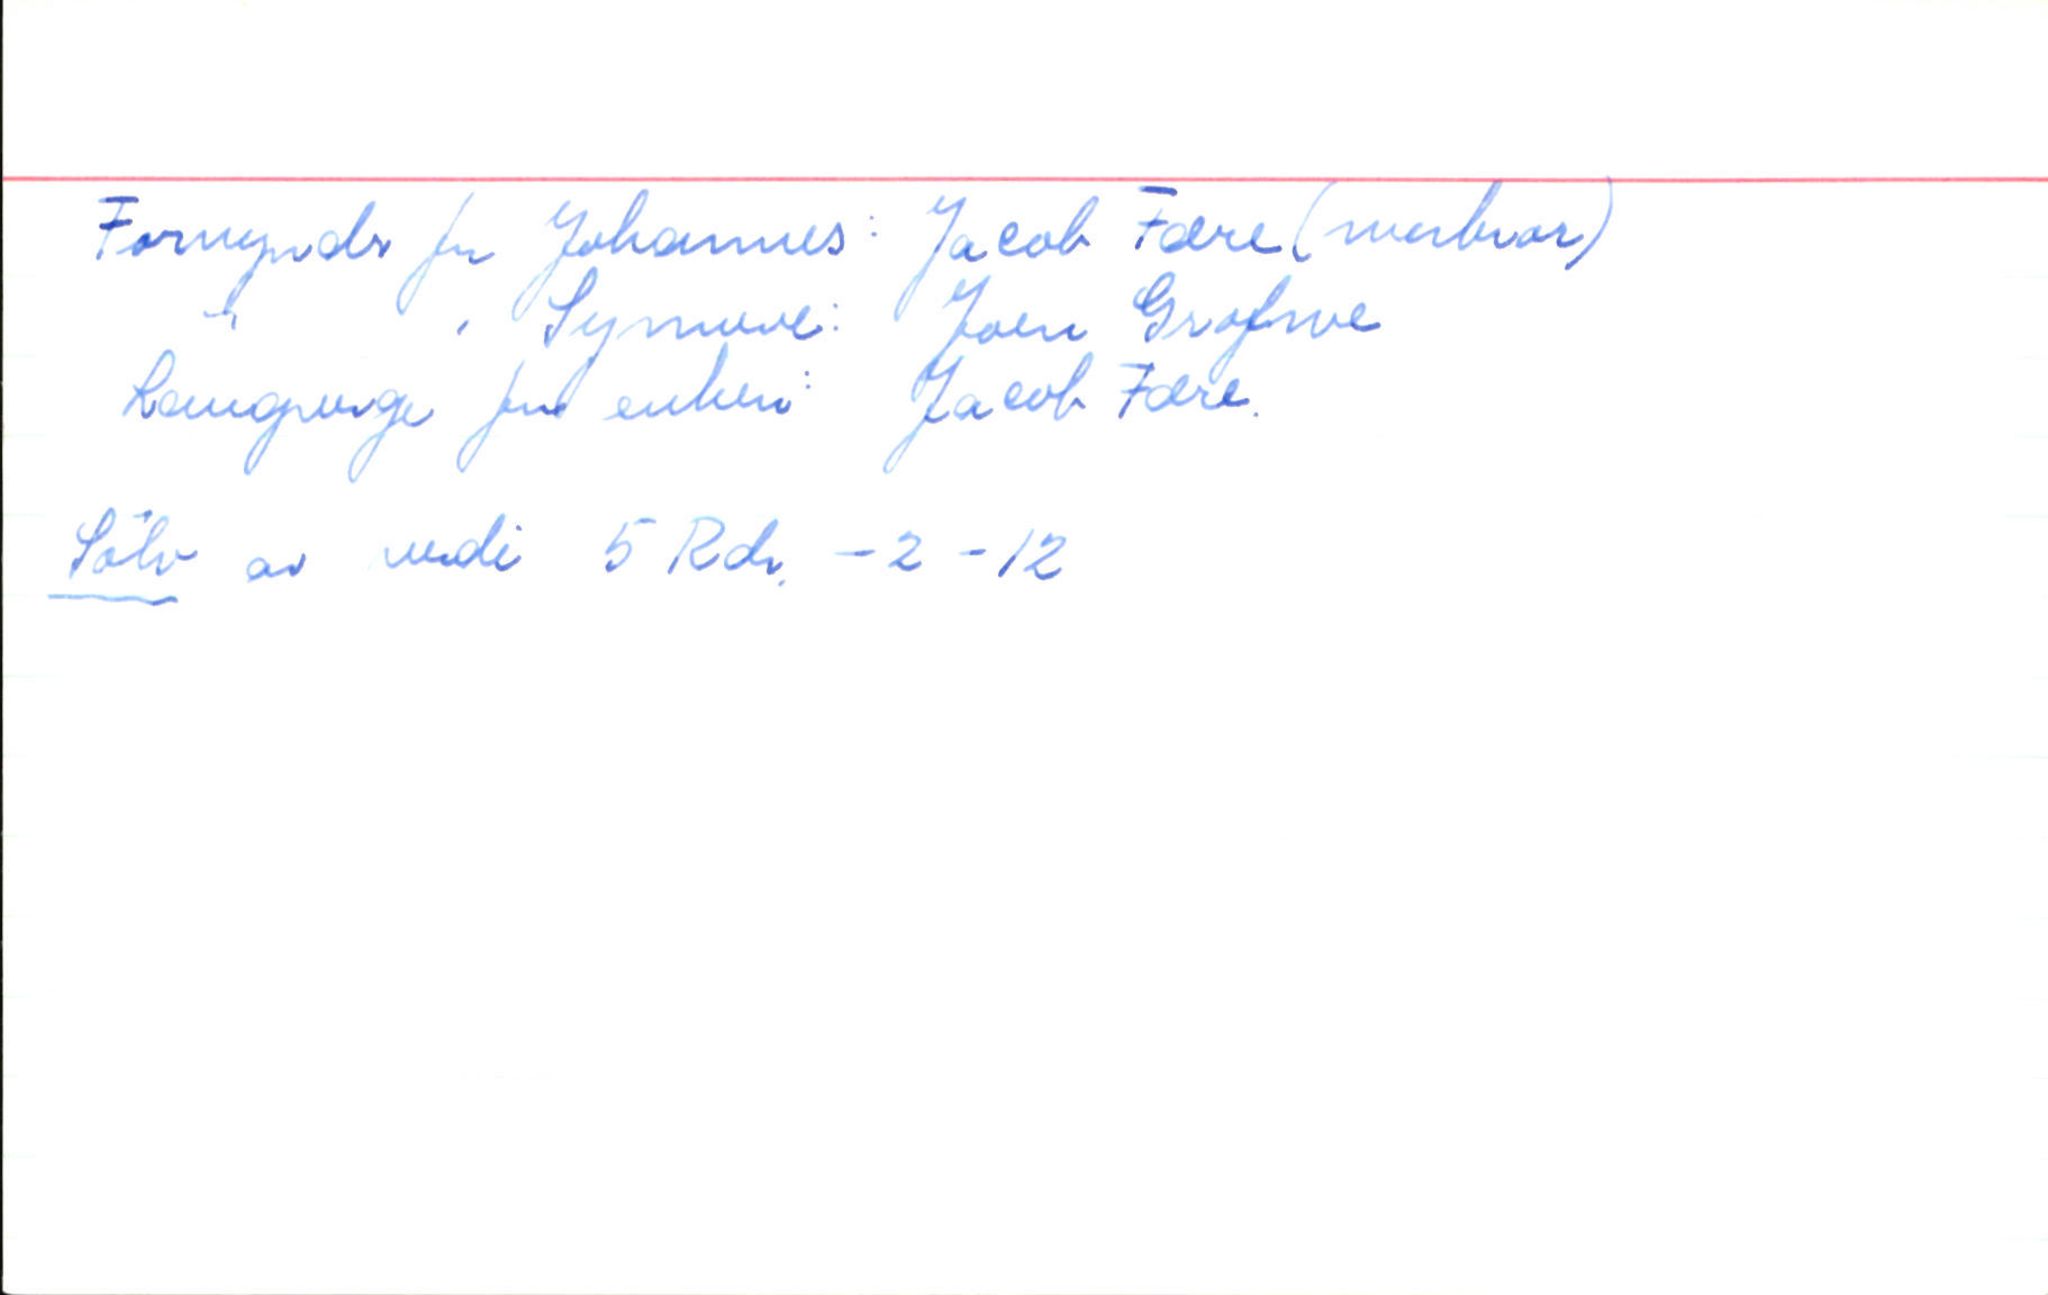 Formyndr for Johannes: Jacob Fære (morbror)
" " Synneve: Joen Grafwe
Laugverge for enken: Jacob Fære.
Sölv av verdi 5 Rdr. - 2 - 12